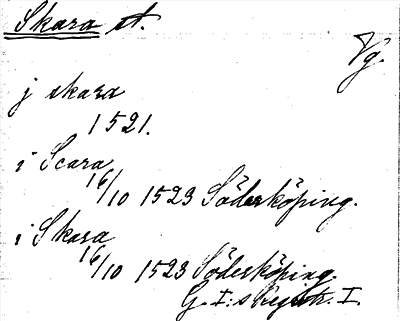 Skara st.
Vg.
j skara
1521.
i Scara
16/10 1523 Söderköping.
i Skara
16/10 1523 Söderköping.
G. I:s Registr. I.